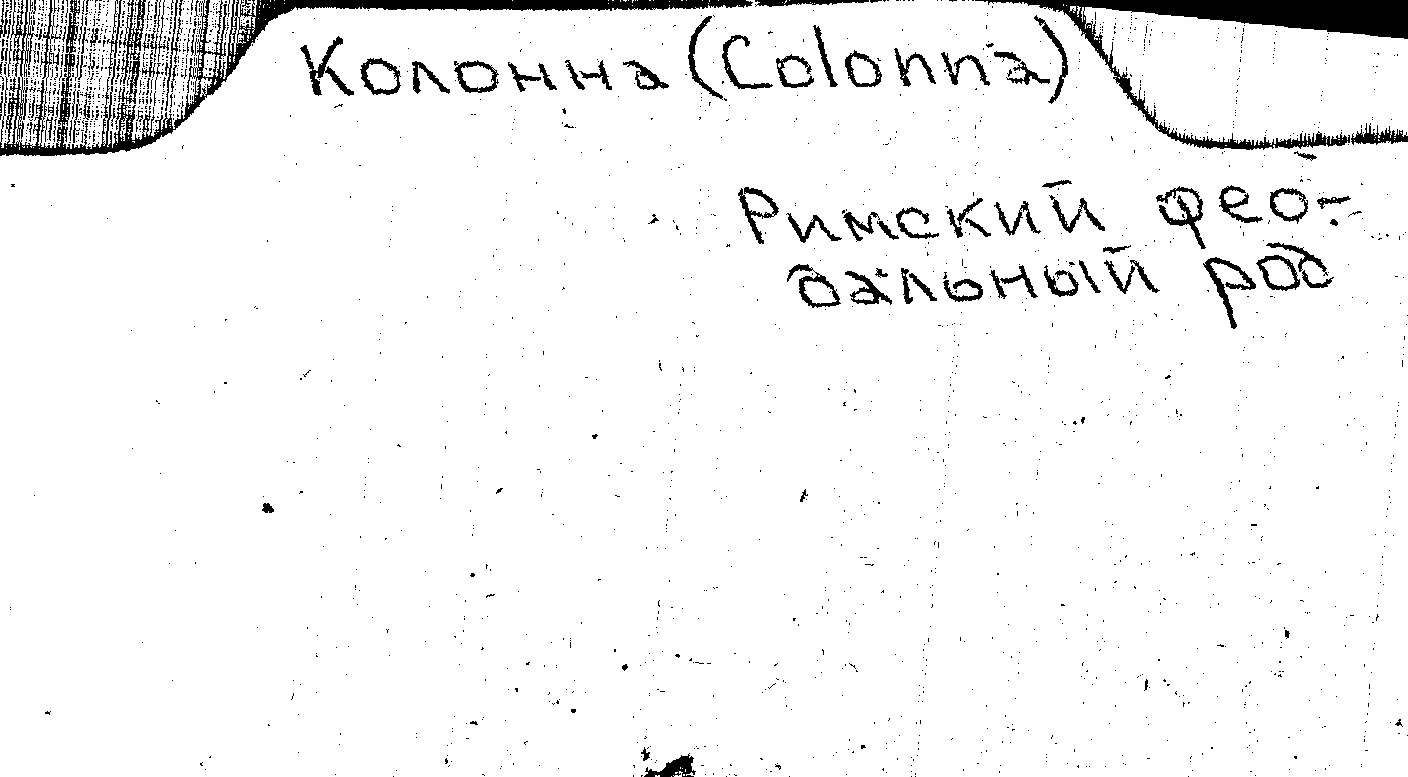 Колонна (Colonna)
Римский фео-
дальный род